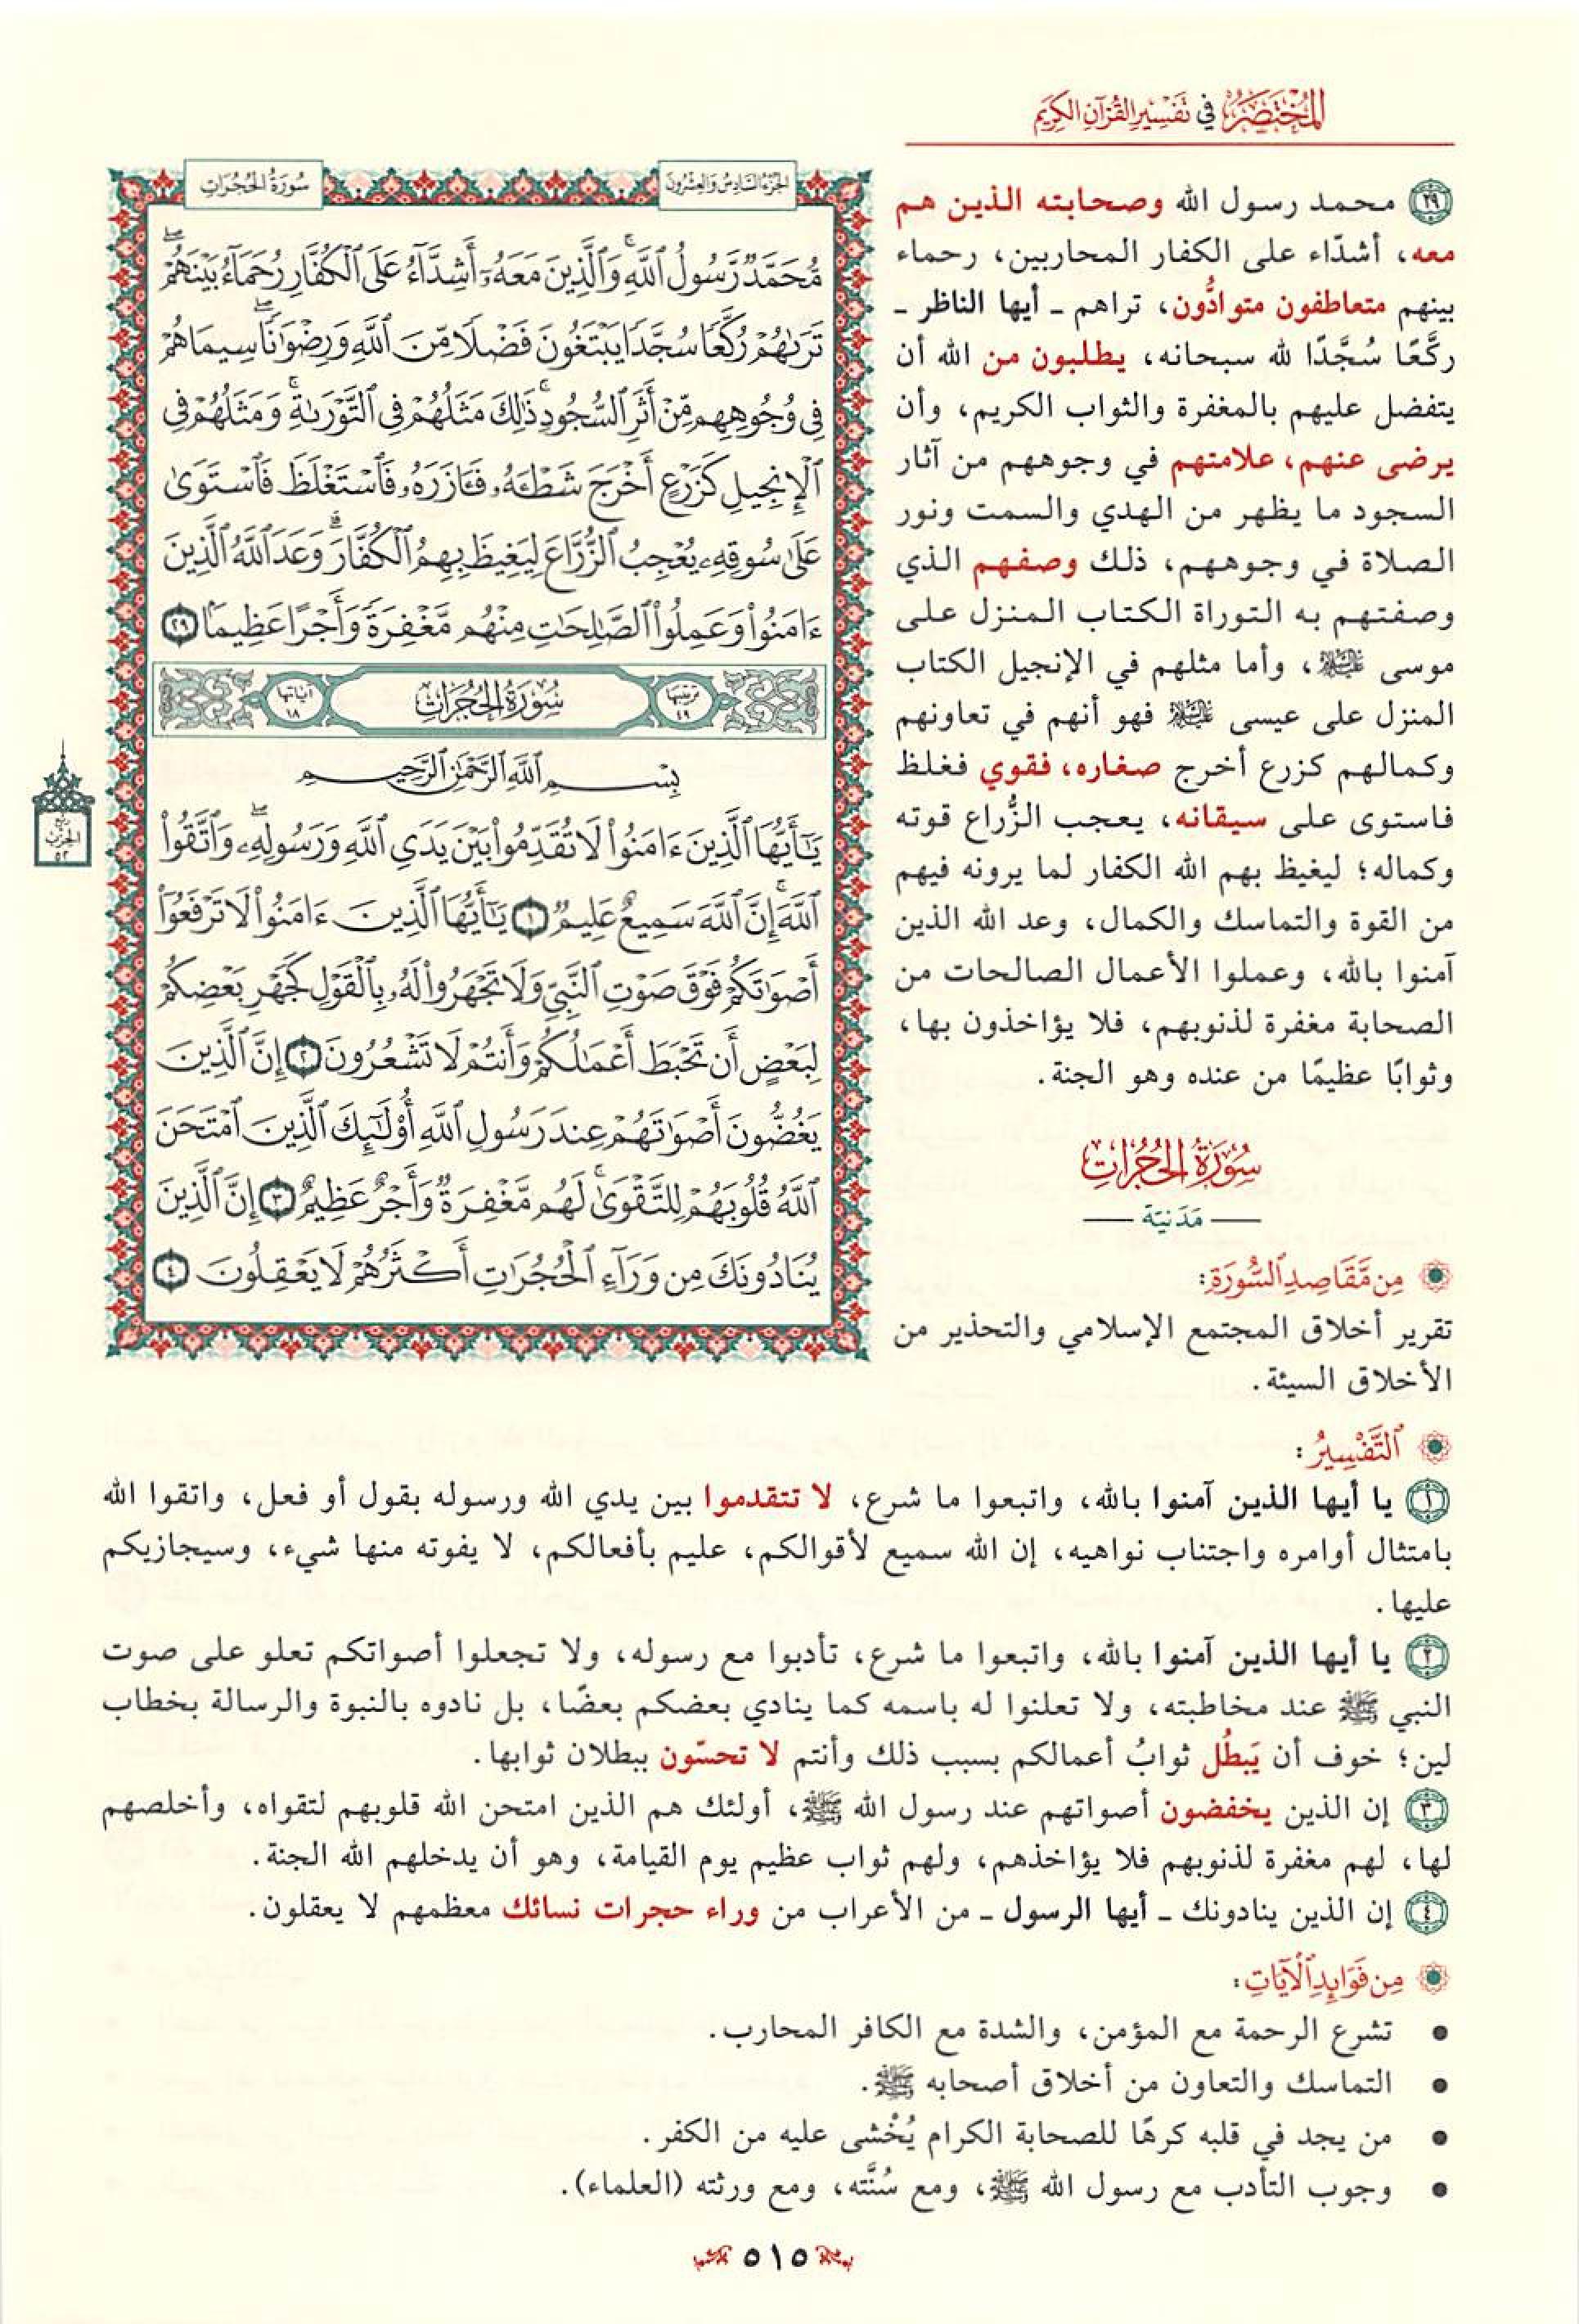 المختصر في تفسير القرآن الكريم
٢٩ محمد رسول الله وصحابته الذين هم
معه، أشدّاء على الكفار المحاربين، رحماء
بينهم متعاطفون متوادُّون، تراهم ـ أيها الناظر ـ
ركَّعًا سُجَّدًا لله سبحانه، يطلبون من الله أن
يتفضل عليهم بالمغفرة والثواب الكريم، وأن
يرضى عنهم، علامتهم في وجوههم من آثار
السجود ما يظهر من الهدي والسمت ونور
الصلاة في وجوههم، ذلك وصفهم الذي
وصفتهم به التوراة الكتاب المنزل على
موسى عليه السلام، وأما مثلهم في الإنجيل الكتاب
المنزل على عيسى عليه السلام فهو أنهم في تعاونهم
وكمالهم كزرع أخرج صغاره، فقوي فغلظ
فاستوى على سيقانه، يعجب الزُّراع قوته
وكماله؛ ليغيظ بهم الله الكفار لما يرونه فيهم
من القوة والتماسك والكمال، وعد الله الذين
آمنوا بالله، وعملوا الأعمال الصالحات من
الصحابة مغفرة لذنوبهم، فلا يؤاخذون بها،
وثوابًا عظيمًا من عنده وهو الجنة.
سُورَةُ الحُجُرَاتِ
مَدَنيّة
مِن مَّقَاصِدِ ٱلسُّورَةِ:
تقرير أخلاق المجتمع الإسلامي والتحذير من
الأخلاق السيئة.
الجزء السادس والعشرون
سُورَةُ الحُجُرَاتِ
مُّحَمَّدٌ رَّسُولُ ٱللَّهِۚ وَٱلَّذِينَ مَعَهُۥٓ أَشِدَّآءُ عَلَى ٱلْكُفَّارِ رُحَمَآءُ بَيْنَهُمْۖ
تَرَىٰهُمْ رُكَّعًا سُجَّدًا يَبْتَغُونَ فَضْلًا مِّنَ ٱللَّهِ وَرِضْوَٰنًاۖ سِيمَاهُمْ
فِي وُجُوهِهِم مِّنْ أَثَرِ ٱلسُّجُودِۚ ذَٰلِكَ مَثَلُهُمْ فِي ٱلتَّوْرَىٰةِۚ وَمَثَلُهُمْ فِي
ٱلْإِنجِيلِ كَزَرْعٍ أَخْرَجَ شَطْـَٔهُۥ فَـَٔازَرَهُۥ فَٱسْتَغْلَظَ فَٱسْتَوَىٰ
عَلَىٰ سُوقِهِۦ يُعْجِبُ ٱلزُّرَّاعَ لِيَغِيظَ بِهِمُ ٱلْكُفَّارَۗ وَعَدَ ٱللَّهُ ٱلَّذِينَ
ءَامَنُوا۟ وَعَمِلُوا۟ ٱلصَّٰلِحَٰتِ مِنْهُم مَّغْفِرَةً وَأَجْرًا عَظِيمًۢا ٢٩
ترتيبها ٤٩ سُورَةُ الحُجُرَاتِ آياتها ١٨
بِسْمِ ٱللَّهِ ٱلرَّحْمَٰنِ ٱلرَّحِيمِ
يَٰٓأَيُّهَا ٱلَّذِينَ ءَامَنُوا۟ لَا تُقَدِّمُوا۟ بَيْنَ يَدَيِ ٱللَّهِ وَرَسُولِهِۦۖ وَٱتَّقُوا۟
ٱللَّهَۚ إِنَّ ٱللَّهَ سَمِيعٌ عَلِيمٌ ١ يَٰٓأَيُّهَا ٱلَّذِينَ ءَامَنُوا۟ لَا تَرْفَعُوٓا۟
أَصْوَٰتَكُمْ فَوْقَ صَوْتِ ٱلنَّبِيِّ وَلَا تَجْهَرُوا۟ لَهُۥ بِٱلْقَوْلِ كَجَهْرِ بَعْضِكُمْ
لِبَعْضٍ أَن تَحْبَطَ أَعْمَٰلُكُمْ وَأَنتُمْ لَا تَشْعُرُونَ ٢ إِنَّ ٱلَّذِينَ
يَغُضُّونَ أَصْوَٰتَهُمْ عِندَ رَسُولِ ٱللَّهِ أُو۟لَٰٓئِكَ ٱلَّذِينَ ٱمْتَحَنَ
ٱللَّهُ قُلُوبَهُمْ لِلتَّقْوَىٰۚ لَهُم مَّغْفِرَةٌ وَأَجْرٌ عَظِيمٌ ٣ إِنَّ ٱلَّذِينَ
يُنَادُونَكَ مِن وَرَآءِ ٱلْحُجُرَٰتِ أَكْثَرُهُمْ لَا يَعْقِلُونَ ٤
ربع
الحزب
٥٢
ٱلتَّفْسِيرُ:
١ يا أيها الذين آمنوا بالله، واتبعوا ما شرع، لا تتقدموا بين يدي الله ورسوله بقول أو فعل، واتقوا الله
بامتثال أوامره واجتناب نواهيه، إن الله سميع لأقوالكم، عليم بأفعالكم، لا يفوته منها شيء، وسيجازيكم
عليها.
٢ يا أيها الذين آمنوا بالله، واتبعوا ما شرع، تأدبوا مع رسوله، ولا تجعلوا أصواتكم تعلو على صوت
النبي ﷺ عند مخاطبته، ولا تعلنوا له باسمه كما ينادي بعضكم بعضًا، بل نادوه بالنبوة والرسالة بخطاب
لين؛ خوف أن يَبطُل ثوابُ أعمالكم بسبب ذلك وأنتم لا تحسّون ببطلان ثوابها.
٣ إن الذين يخفضون أصواتهم عند رسول الله ﷺ، أولئك هم الذين امتحن الله قلوبهم لتقواه، وأخلصهم
لها، لهم مغفرة لذنوبهم فلا يؤاخذهم، ولهم ثواب عظيم يوم القيامة، وهو أن يدخلهم الله الجنة.
٤ إن الذين ينادونك ـ أيها الرسول ـ من الأعراب من وراء حجرات نسائك معظمهم لا يعقلون.
مِن فَوَائِدِ ٱلْآيَاتِ:
• تشرع الرحمة مع المؤمن، والشدة مع الكافر المحارب.
• التماسك والتعاون من أخلاق أصحابه ﷺ.
• من يجد في قلبه كرهًا للصحابة الكرام يُخْشى عليه من الكفر.
• وجوب التأدب مع رسول الله ﷺ، ومع سُنَّته، ومع ورثته (العلماء).
٥١٥